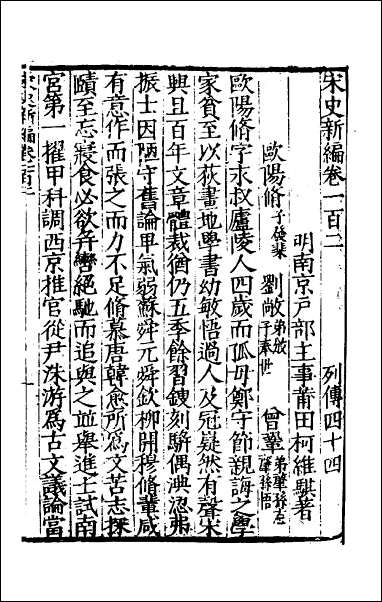 宋史新編卷一百二　列傳四十四
明南京戶部主事莆田柯維騏著
歐陽脩子發棐　劉敞弟攽子奉世　曾鞏弟肇
歐陽脩字永叔廬陵人四歲而孤母鄭守節親誨之學
家貧至以荻畫地學書幼敏悟過人及冠嶷然有聲宋
興且百年文章體裁猶仍五季餘習鎪刻駢偶淟涊弗
振士因陋守舊論卑氣弱蘇舜元舜欽柳開穆脩輩咸
有意作而張之而力不足脩慕唐韓愈所爲文苦志探
賾至忘寢食必欲幷轡絕馳而追與之並舉進士試南
宮第一擢甲科調西京推官從尹洙游爲古文議論當
宋史新編卷一百二